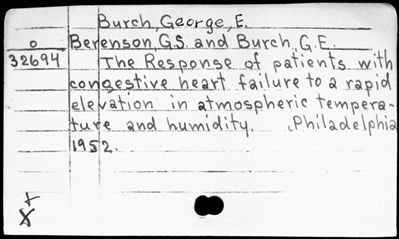 Burch, George, E.
o Berenson, G.S. and Burch, G.E.
32694 The Response of patients with
congestive heart failure to a rapid
elevation in atmospheric tempera-
ture and humidity. Philadelphia
1952.